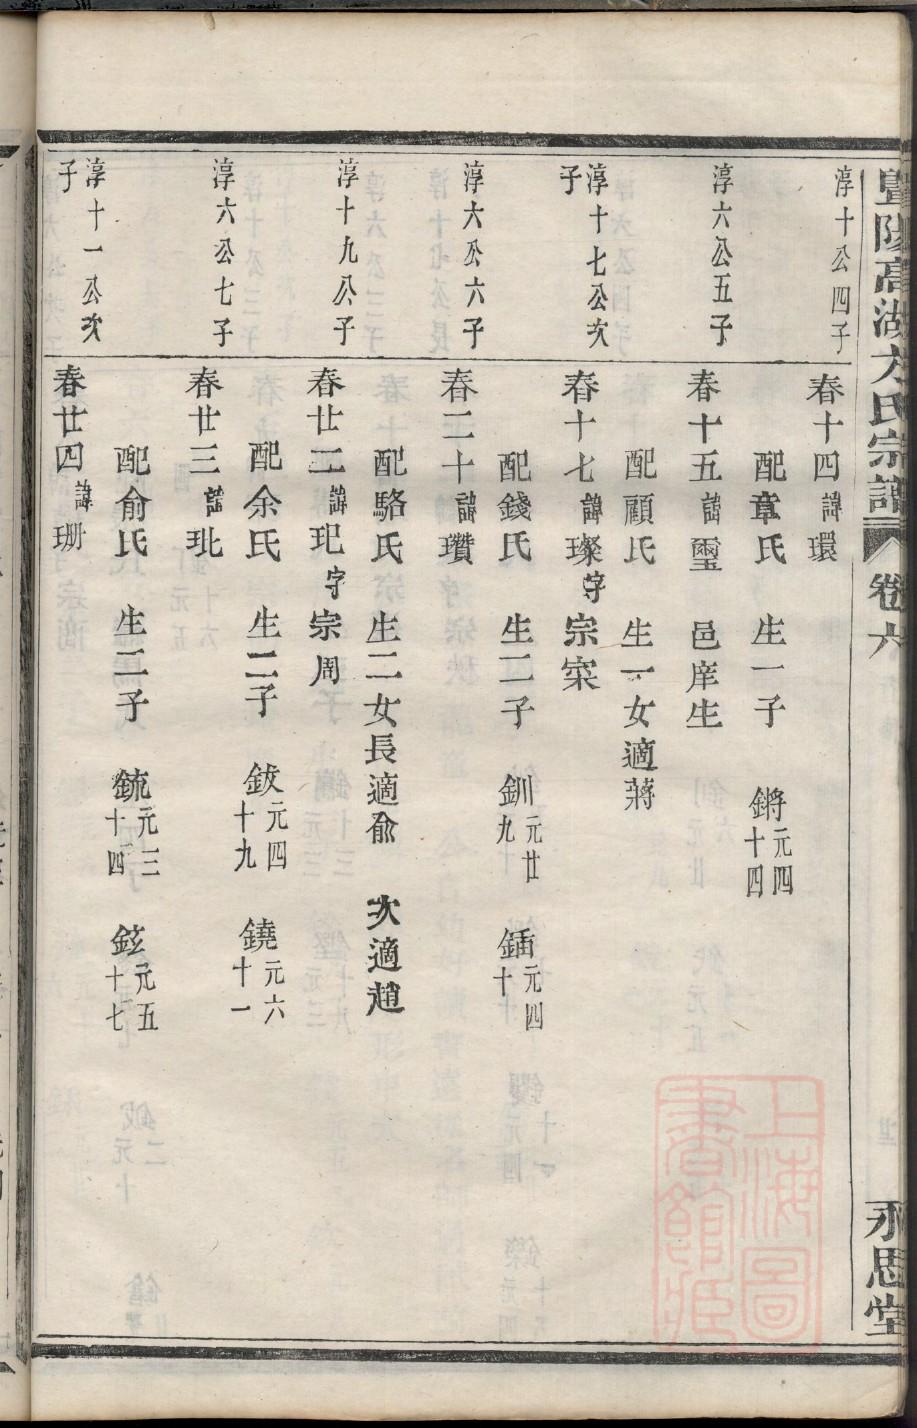 暨陽高湖方氏宗譜 卷六 永思堂
淳十公四子
春十四諱環
配章氏 生一子 鏘元四十四
淳六公五子
春十五諱璽 邑庠生
配顧氏 生一女適蔣
淳十七公次子
春十七諱璨字宗寀
配錢氏 生二子 釧元廿九 鍤元四十
淳六公六子
春二十諱瓚
淳十九公子
配駱氏 生二女長適俞 次適趙
春廿二諱玘字宗周
配余氏 生二子 鈸元四十九 鐃元六十一
淳六公七子
春廿三諱玭
配俞氏 生二子 銃元三十四 鉉元五十七
淳十一公次子
春廿四諱珊
上海圖書館藏